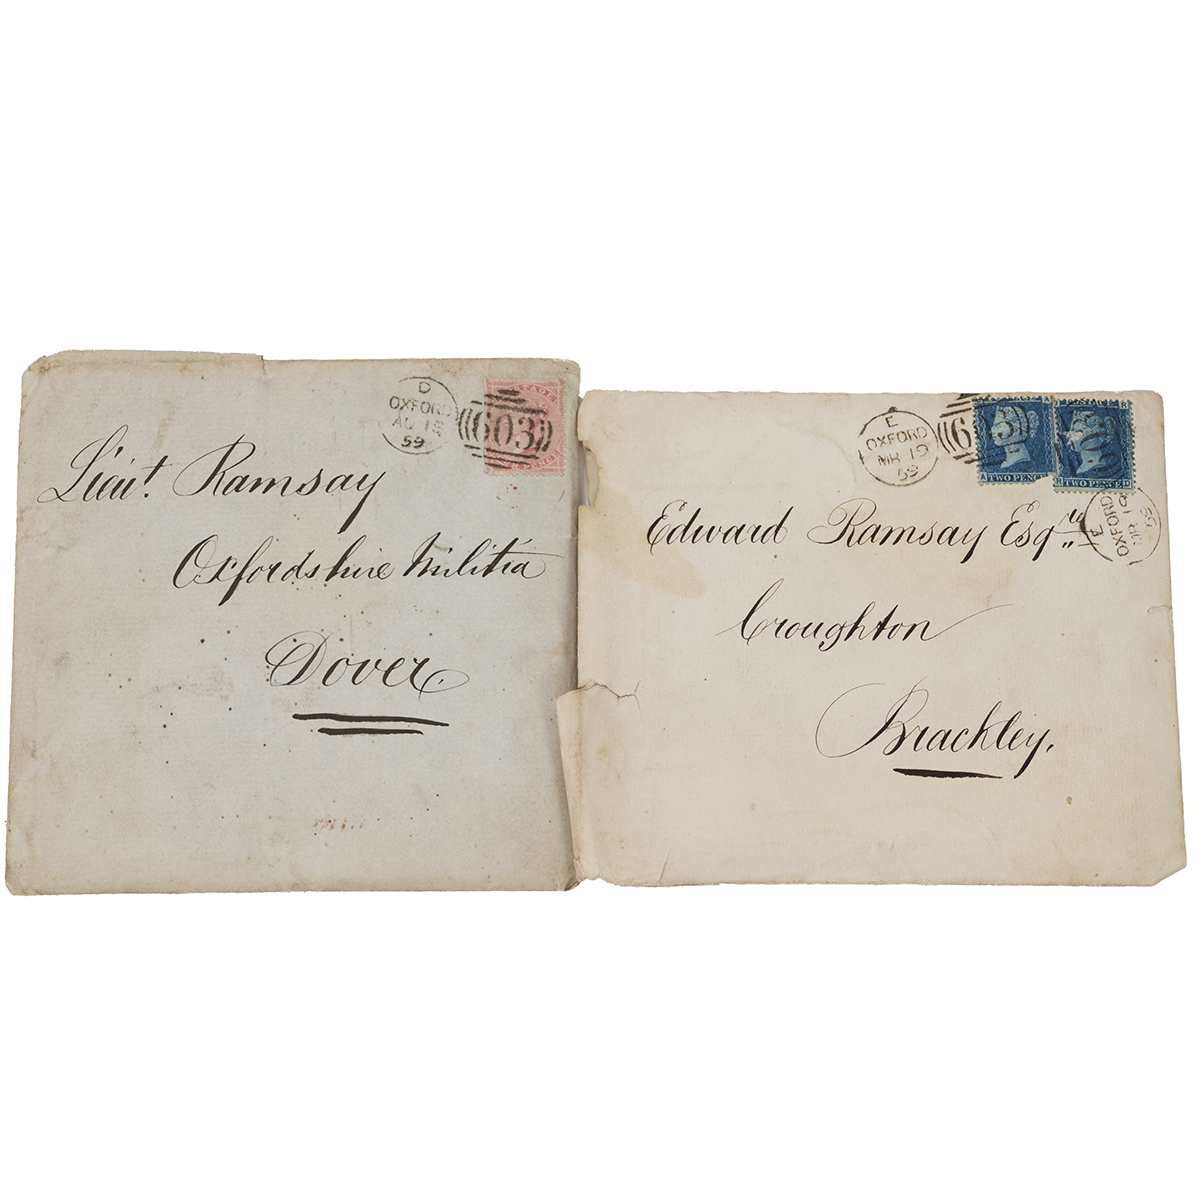 D
OXFORD
AU 15
59
603
POSTAGE
PENCE
Lieut. Ramsay
Oxfordshire Militia
Dover.
E
OXFORD
MR 19
59
6
TWO PENCE
R TWO PENCE D
E
OXFORD
MR 19
59
Edward Ramsay Esqre
Croughton
Brackley.